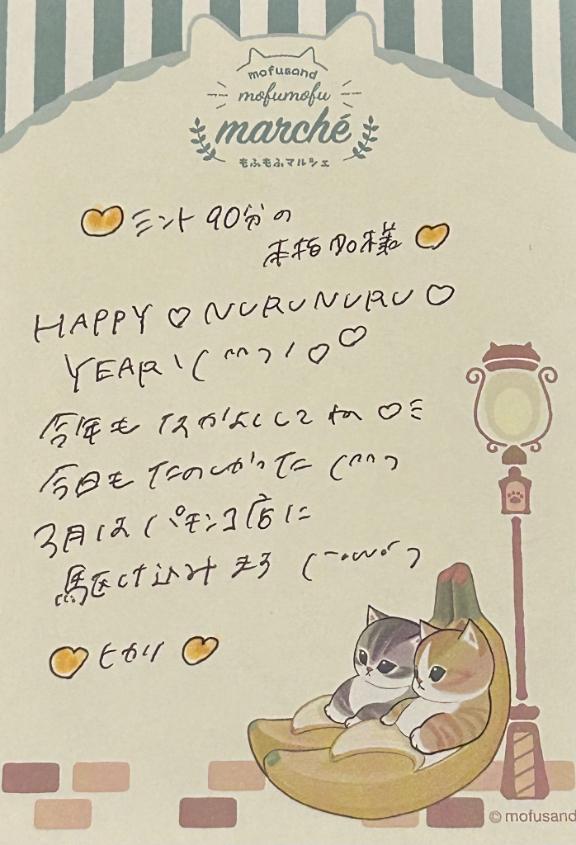 mofusand
mofumofu
marché
もふもふマルシェ
ミント 90分の
様
HAPPY ♡ NURUNURU ♡
YEAR \(^^)/ ♡♡
今年も なかよくしてね ♡
今日も たのしかった (^^)
3月は 店に
駆け込みます (´・ω・`)
ヒカリ
© mofusand